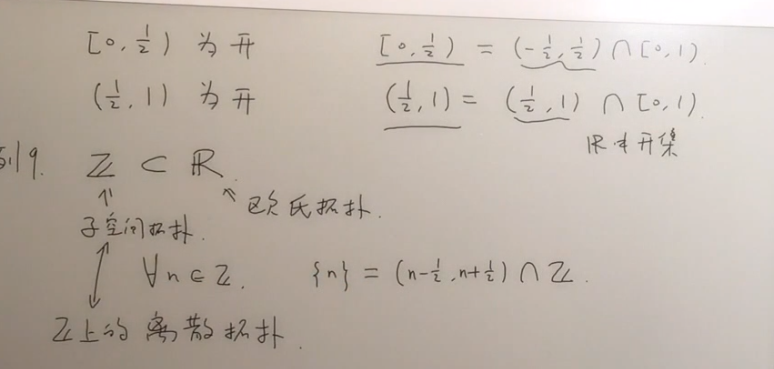 [0, 1/2) 为开 [0, 1/2) = (-1/2, 1/2) ∩ [0, 1).
(1/2, 1) 为开 (1/2, 1) = (1/2, 1) ∩ [0, 1).
ℝ中开集
例9. ℤ ⊂ ℝ
↑ ↖ 欧氏拓扑.
子空间拓扑.
↕ ∀n∈ℤ. {n} = (n-1/2, n+1/2) ∩ ℤ.
ℤ上的离散拓扑.